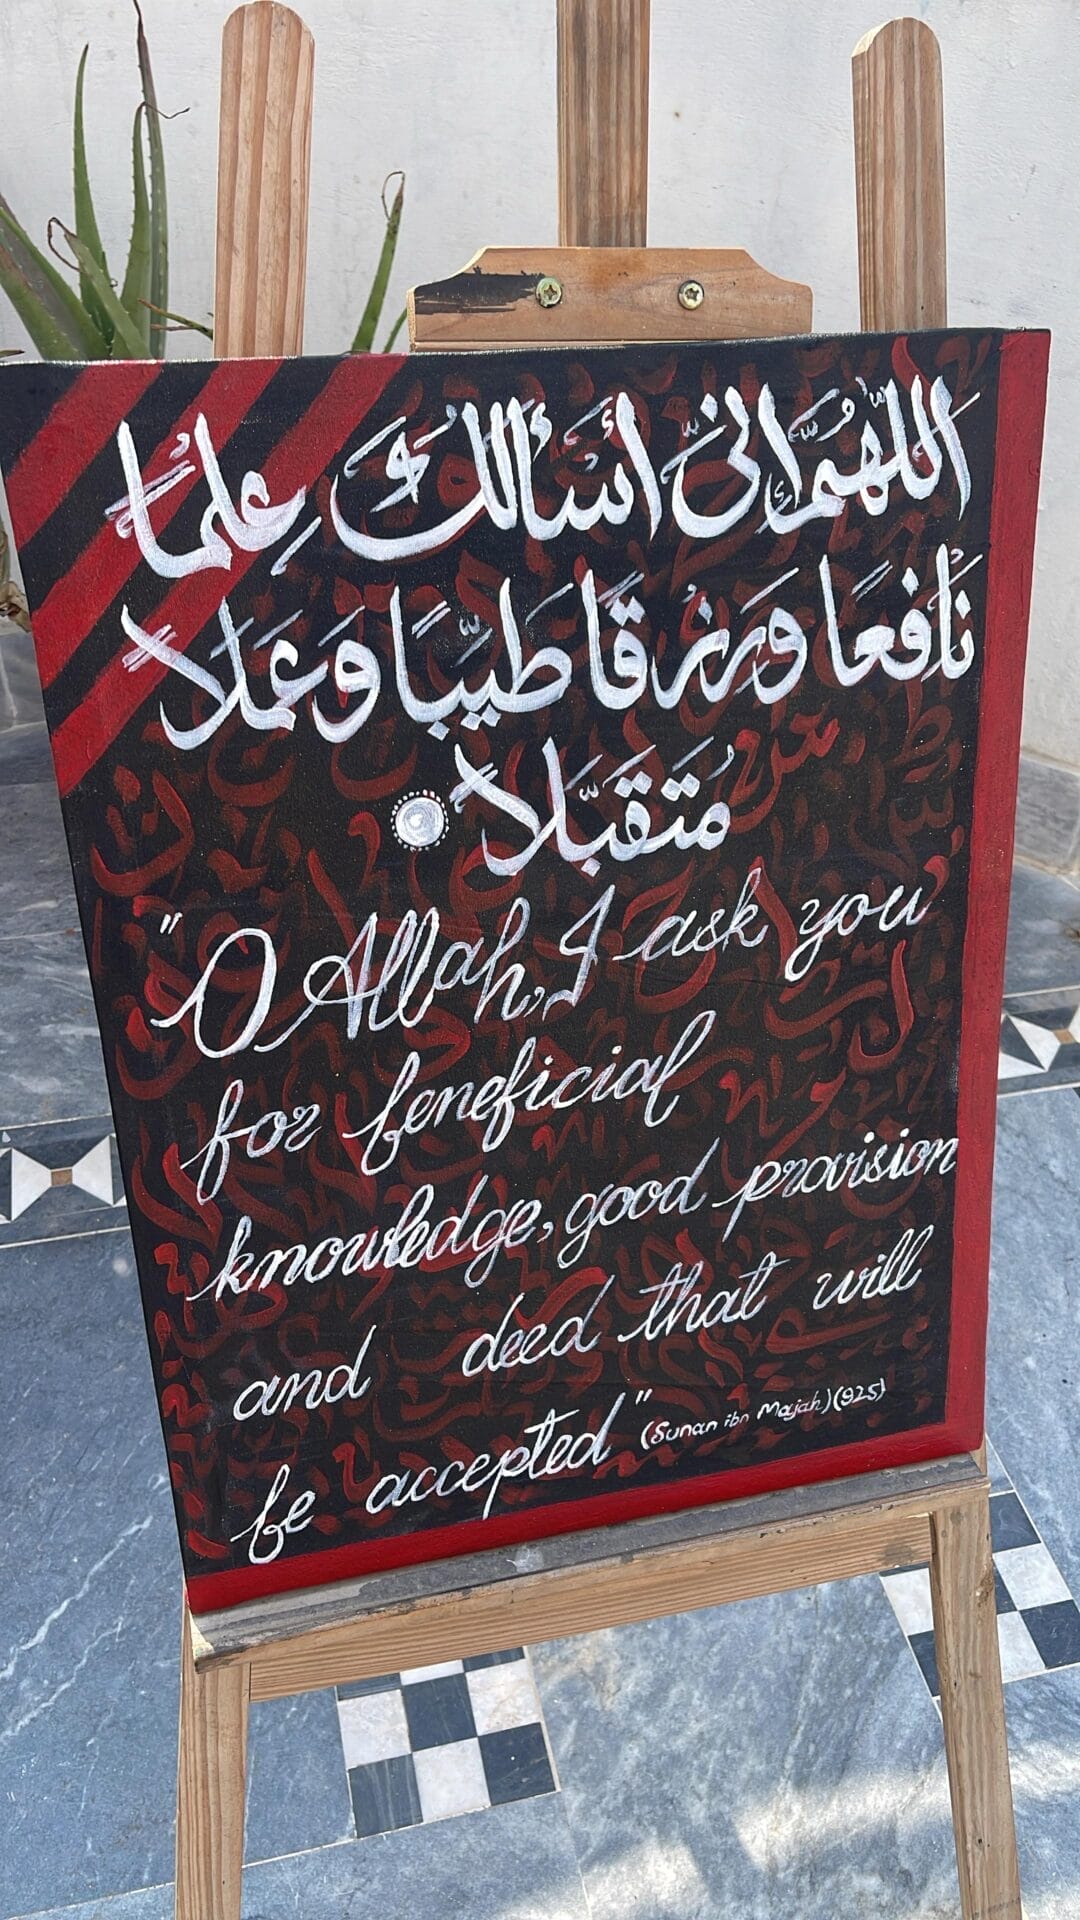 اللّٰهُمَّ إِنّي أَسْأَلُكَ عِلْمًا
نَافِعًا وَرِزْقًا طَيِّبًا وَعَمَلًا
مُتَقَبَّلًا
"O Allah, I ask you
for beneficial
knowledge, good provision
and deed that will
be accepted" (Sunan ibn Majah)(925)